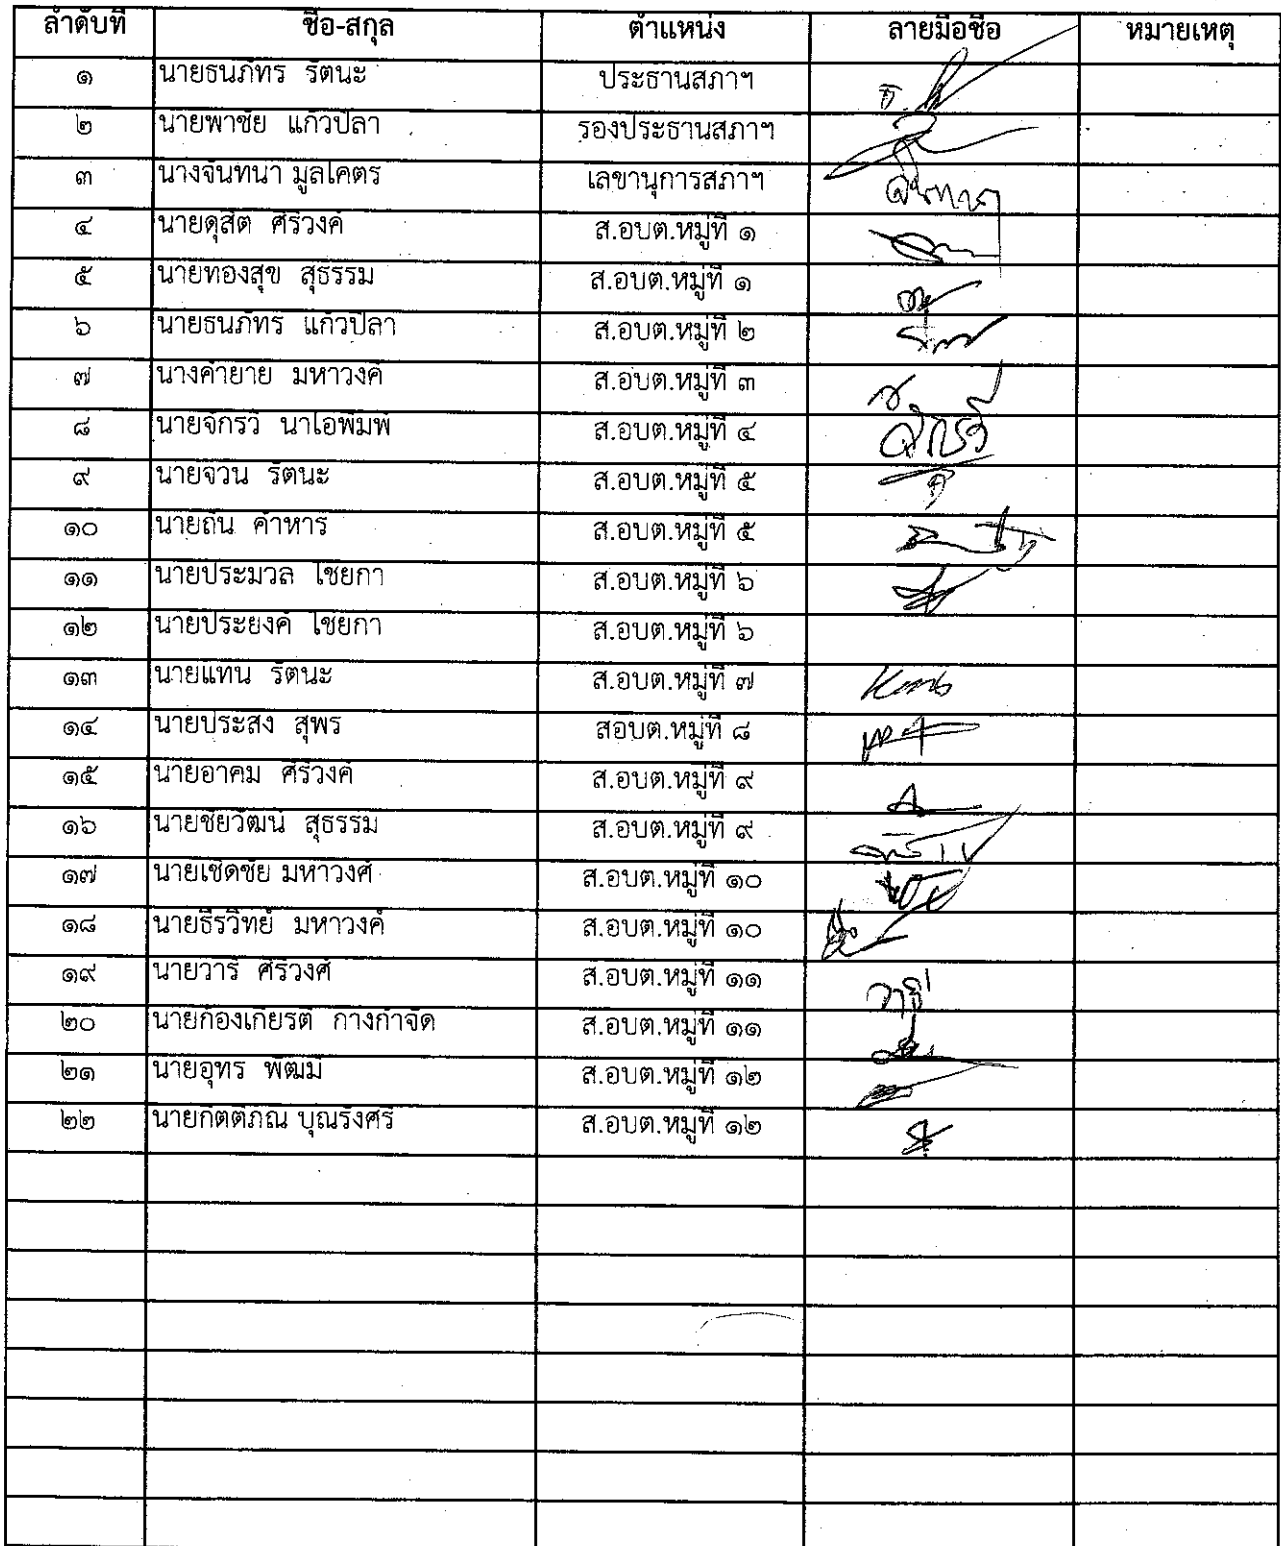 ลำดับที่ ชื่อ-สกุล ตำแหน่ง ลายมือชื่อ หมายเหตุ
๑ นายธนภัทร รัตนะ ประธานสภาฯ
๒ นายพาชัย แก้วปีลา รองประธานสภาฯ
๓ นางจันทนา มูลโคตร เลขานุการสภาฯ
๔ นายดุสิต ศรีวงค์ ส.อบต.หมู่ที่ ๑
๕ นายทองสุข สุธรรม ส.อบต.หมู่ที่ ๑
๖ นายธนภัทร แก้วปีลา ส.อบต.หมู่ที่ ๒
๗ นางคำยาย มหาวงค์ ส.อบต.หมู่ที่ ๓
๘ นายจักรวี นาโอพิมพ์ ส.อบต.หมู่ที่ ๔ จักรวี
๙ นายจวน รัตนะ ส.อบต.หมู่ที่ ๕
๑๐ นายถัน คำหาร ส.อบต.หมู่ที่ ๕
๑๑ นายประมวล ไชยกา ส.อบต.หมู่ที่ ๖
๑๒ นายประยงค์ ไชยกา ส.อบต.หมู่ที่ ๖
๑๓ นายแทน รัตนะ ส.อบต.หมู่ที่ ๗
๑๔ นายประสง สุพร สอบต.หมู่ที่ ๘
๑๕ นายอาคม ศรีวงค์ ส.อบต.หมู่ที่ ๙
๑๖ นายชัยวัฒน์ สุธรรม ส.อบต.หมู่ที่ ๙
๑๗ นายเชิดชัย มหาวงศ์ ส.อบต.หมู่ที่ ๑๐
๑๘ นายธีรวิทย์ มหาวงค์ ส.อบต.หมู่ที่ ๑๐
๑๙ นายวารี ศรีวงศ์ ส.อบต.หมู่ที่ ๑๑ วารี
๒๐ นายก้องเกียรติ กางกำจัด ส.อบต.หมู่ที่ ๑๑
๒๑ นายอุทร พัฒมี ส.อบต.หมู่ที่ ๑๒
๒๒ นายกิตติภณ บุณรังศรี ส.อบต.หมู่ที่ ๑๒